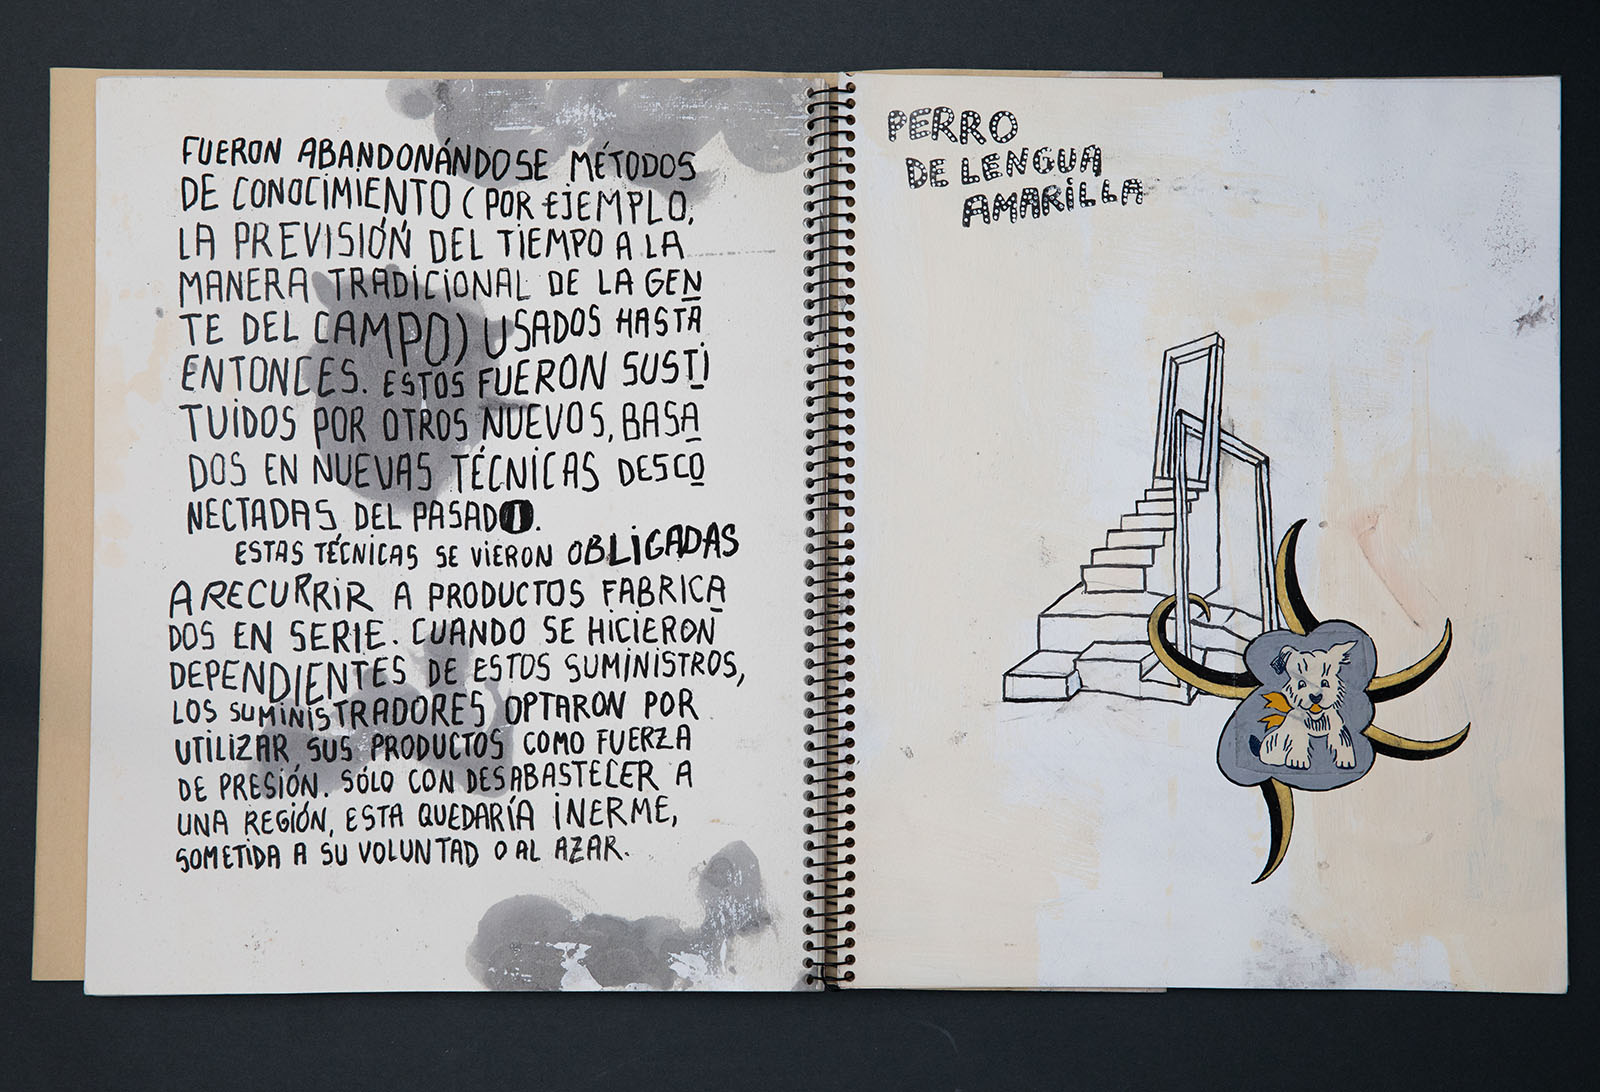 FUERON ABANDONÁNDOSE MÉTODOS
DE CONOCIMIENTO (POR EJEMPLO,
LA PREVISIÓN DEL TIEMPO A LA
MANERA TRADICIONAL DE LA GEN
TE DEL CAMPO) USADOS HASTA
ENTONCES. ESTOS FUERON SUSTI
TUIDOS POR OTROS NUEVOS, BASA
DOS EN NUEVAS TÉCNICAS DESCO
NECTADAS DEL PASADO.
ESTAS TÉCNICAS SE VIERON OBLIGADAS
A RECURRIR A PRODUCTOS FABRICA
DOS EN SERIE. CUANDO SE HICIERON
DEPENDIENTES DE ESTOS SUMINISTROS,
LOS SUMINISTRADORES OPTARON POR
UTILIZAR SUS PRODUCTOS COMO FUERZA
DE PRESIÓN. SÓLO CON DESABASTECER A
UNA REGIÓN, ESTA QUEDARÍA INERME,
SOMETIDA A SU VOLUNTAD O AL AZAR.
PERRO
DE LENGUA
AMARILLA